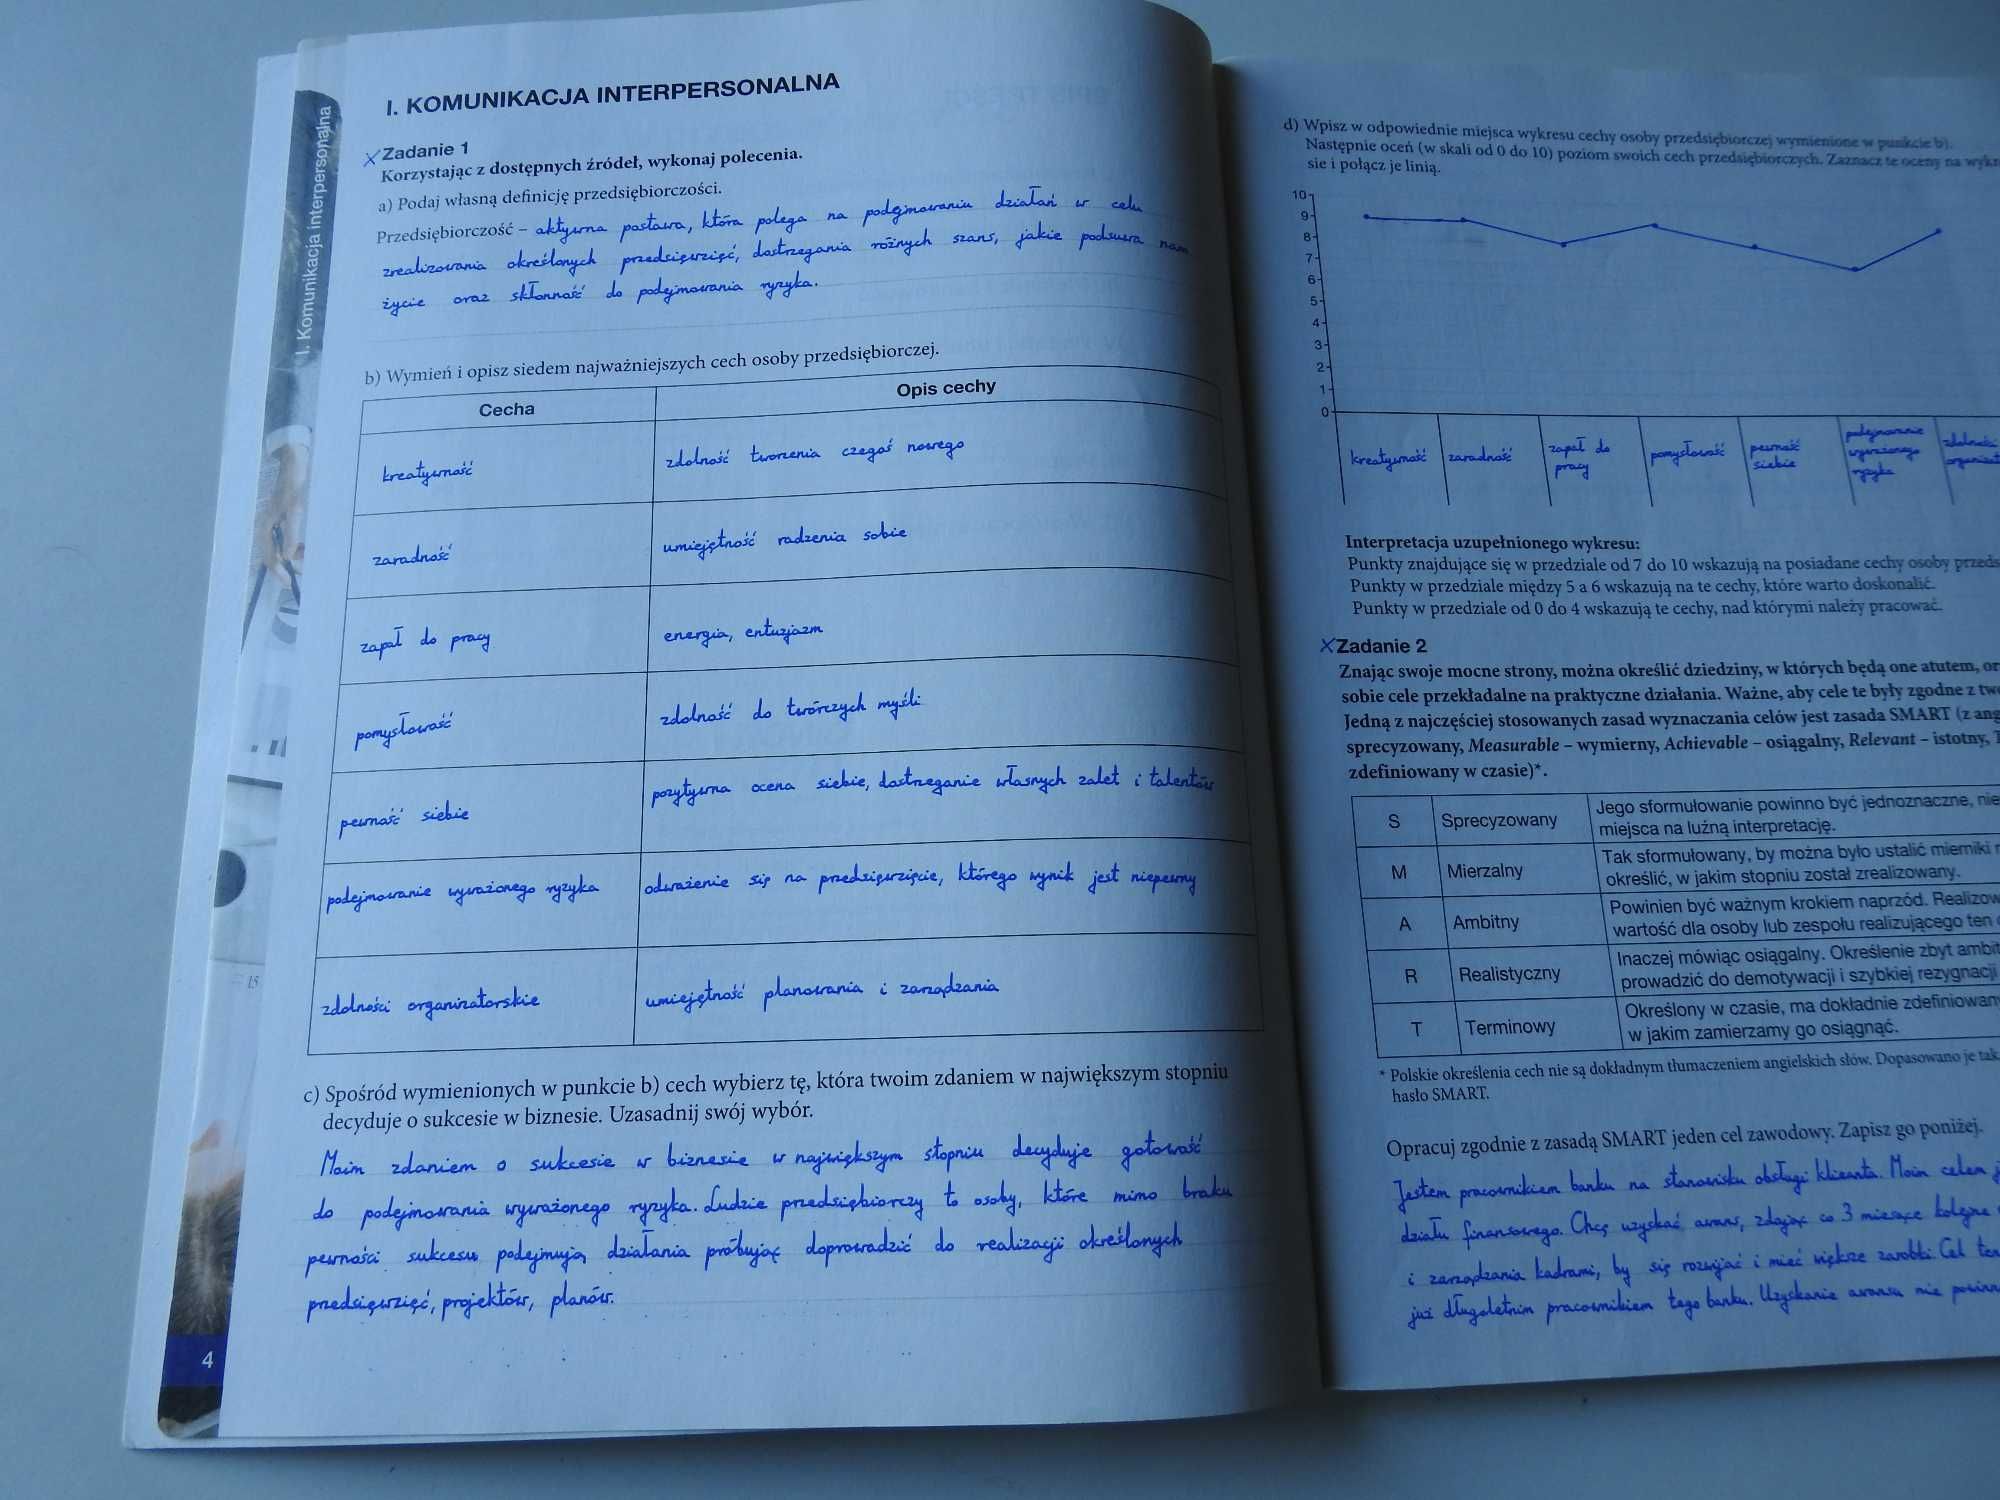 I. Komunikacja interpersonalna
I. KOMUNIKACJA INTERPERSONALNA
Zadanie 1
Korzystając z dostępnych źródeł, wykonaj polecenia.
a) Podaj własną definicję przedsiębiorczości.
Przedsiębiorczość – aktywna postawa, która polega na podejmowaniu działań w celu
zrealizowania określonych przedsięwzięć, dostrzegania różnych szans, jakie podsuwa nam
życie oraz skłonność do podejmowania ryzyka.
b) Wymień i opisz siedem najważniejszych cech osoby przedsiębiorczej.
Cecha Opis cechy
kreatywność zdolność tworzenia czegoś nowego
zaradność umiejętność radzenia sobie
zapał do pracy energia, entuzjazm
pomysłowość zdolność do twórczych myśli
pewność siebie pozytywna ocena siebie, dostrzeganie własnych zalet i talentów
podejmowanie wyważonego ryzyka odważenie się na przedsięwzięcie, którego wynik jest niepewny
zdolności organizatorskie umiejętność planowania i zarządzania
c) Spośród wymienionych w punkcie b) cech wybierz tę, która twoim zdaniem w największym stopniu
decyduje o sukcesie w biznesie. Uzasadnij swój wybór.
Moim zdaniem o sukcesie w biznesie w największym stopniu decyduje gotowość
do podejmowania wyważonego ryzyka. Ludzie przedsiębiorczy to osoby, które mimo braku
pewności sukcesu podejmują działania próbując doprowadzić do realizacji określonych
przedsięwzięć, projektów, planów.
15
4
d) Wpisz w odpowiednie miejsca wykresu cechy osoby przedsiębiorczej wymienione w punkcie b).
Następnie oceń (w skali od 0 do 10) poziom swoich cech przedsiębiorczych. Zaznacz te oceny na wykre
sie i połącz je linią.
10
9
8
7
6
5
4
3
2
1
0
kreatywność zaradność zapał do pracy pomysłowość pewność siebie podejmowanie wyważonego ryzyka zdolności organizat
Interpretacja uzupełnionego wykresu:
Punkty znajdujące się w przedziale od 7 do 10 wskazują na posiadane cechy osoby przeds
Punkty w przedziale między 5 a 6 wskazują na te cechy, które warto doskonalić.
Punkty w przedziale od 0 do 4 wskazują te cechy, nad którymi należy pracować.
Zadanie 2
Znając swoje mocne strony, można określić dziedziny, w których będą one atutem, or
sobie cele przekładalne na praktyczne działania. Ważne, aby cele te były zgodne z tw
Jedną z najczęściej stosowanych zasad wyznaczania celów jest zasada SMART (z ang
sprecyzowany, Measurable – wymierny, Achievable – osiągalny, Relevant – istotny, T
zdefiniowany w czasie)*.
S Sprecyzowany Jego sformułowanie powinno być jednoznaczne, nie
miejsca na luźną interpretację.
M Mierzalny Tak sformułowany, by można było ustalić mierniki
określić, w jakim stopniu został zrealizowany.
A Ambitny Powinien być ważnym krokiem naprzód. Realizow
wartość dla osoby lub zespołu realizującego ten
R Realistyczny Inaczej mówiąc osiągalny. Określenie zbyt ambit
prowadzić do demotywacji i szybkiej rezygnacji
T Terminowy Określony w czasie, ma dokładnie zdefiniowan
w jakim zamierzamy go osiągnąć.
* Polskie określenia cech nie są dokładnym tłumaczeniem angielskich słów. Dopasowano je tak
hasło SMART.
Opracuj zgodnie z zasadą SMART jeden cel zawodowy. Zapisz go poniżej.
Jestem pracownikiem banku na stanowisku obsługi klienta. Moim celem j
działu finansowego. Chcę uzyskać awans, zdając co 3 miesiące kolejne
i zarządzania kadrami, by się rozwijać i mieć większe zarobki. Cel ten
już długoletnim pracownikiem tego banku. Uzyskanie awansu nie powinn